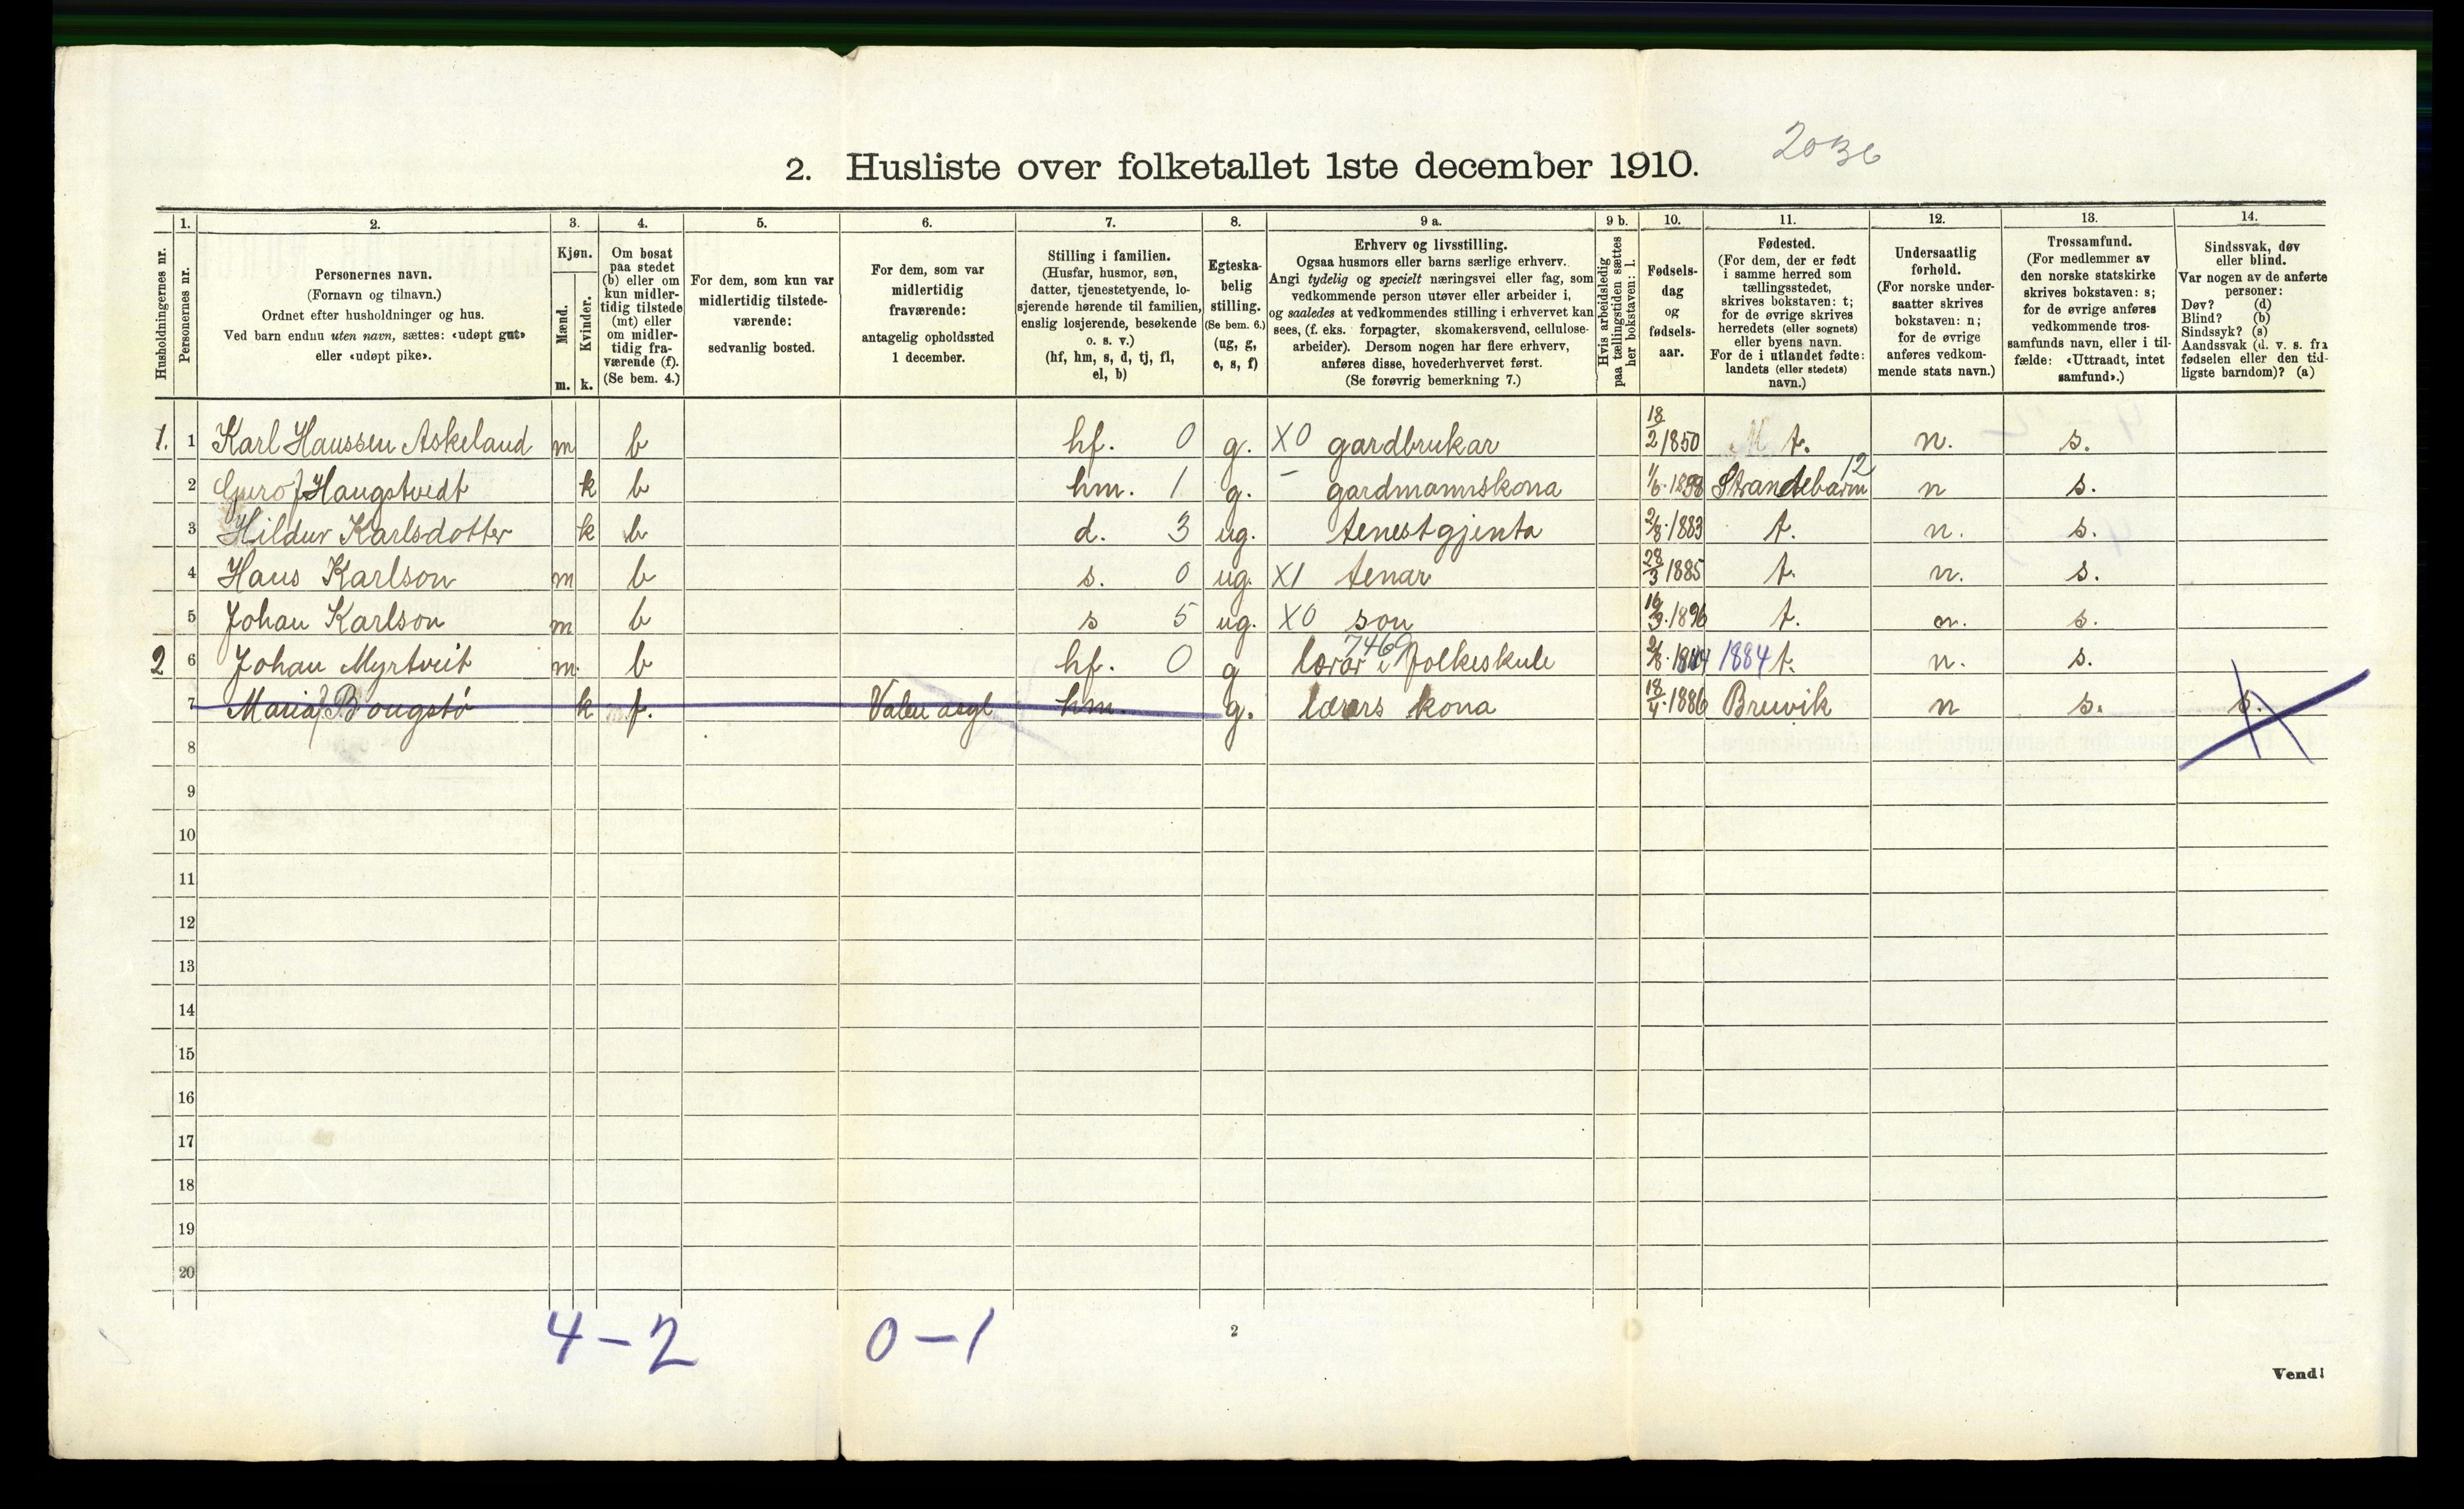 2. Husliste over folketallet 1ste december 1910. 2036
Husholdningernes nr.
1. Personernes nr.
2. Personernes navn. (Fornavn og tilnavn.) Ordnet efter husholdninger og hus. Ved barn endnu uten navn, sættes: «udøpt gut» eller «udøpt pike».
3. Kjøn. Mænd. m. Kvinder. k.
4. Om bosat paa stedet (b) eller om kun midlertidig tilstede (mt) eller om midlertidig fraværende (f). (Se bem. 4.)
5. For dem, som kun var midlertidig tilstedeværende: sedvanlig bosted.
6. For dem, som var midlertidig fraværende: antagelig opholdssted 1 december.
7. Stilling i familien. (Husfar, husmor, søn, datter, tjenestetyende, losjerende hørende til familien, enslig losjerende, besøkende o. s. v.) (hf, hm, s, d, tj, fl, el, b)
8. Egteskabelig stilling. (Se bem. 6.) (ug, g, e, s, f)
9 a. Erhverv og livsstilling. Ogsaa husmors eller barns særlige erhverv. Angi tydelig og specielt næringsvei eller fag, som vedkommende person utøver eller arbeider i, og saaledes at vedkommendes stilling i erhvervet kan sees, (f. eks. forpagter, skomakersvend, cellulosearbeider). Dersom nogen har flere erhverv, anføres disse, hovederhvervet først. (Se forøvrig bemerkning 7.)
9 b. Hvis arbeidsledig paa tællingstiden sættes her bokstaven: l.
10. Fødselsdag og fødselsaar.
11. Fødested. (For dem, der er født i samme herred som tællingsstedet, skrives bokstaven: t; for de øvrige skrives herredets (eller sognets) eller byens navn. For de i utlandet fødte: landets (eller stedets) navn.)
12. Undersaatlig forhold. (For norske undersaatter skrives bokstaven: n; for de øvrige anføres vedkommende stats navn.)
13. Trossamfund. (For medlemmer av den norske statskirke skrives bokstaven: s; for de øvrige anføres vedkommende trossamfunds navn, eller i tilfælde: «Uttraadt, intet samfund».)
14. Sindssvak, døv eller blind. Var nogen av de anførte personer: Døv? (d) Blind? (b) Sindssyk? (s) Aandssvak (d. v. s. fra fødselen eller den tidligste barndom)? (a)
1. 1 Karl Hanssen Askeland m b hf. 0 g. X0 gardbrukar 18/2 1850 t. n. s.
2 Guro J Haugstvedt k b hm. 1 g. – gardmannskona 1/6. Strandebarm 12 n s.
3 Hildur Karlsdotter k b d. 3 ug. tenestgjenta 2/8 1883 t. n. s.
4 Hans Karlson m b s. 0 ug. X1 tenar 28/3 1885 t. n. s.
5 Johan Karlson m b s 5 ug. X0 son 1896 t. n. s.
2 6 Johan Myrtveit m. b hf. 0 g lærar i folkeskule 7469 1884 t. n. s.
7 Maria k f. Valen asyl hm g. lærars kona 18/4. 1886 Bruvik n s. s.
8
9
10
11
12
13
14
15
16
17
18
19
20
4 – 2 0 – 1
2
Vend!